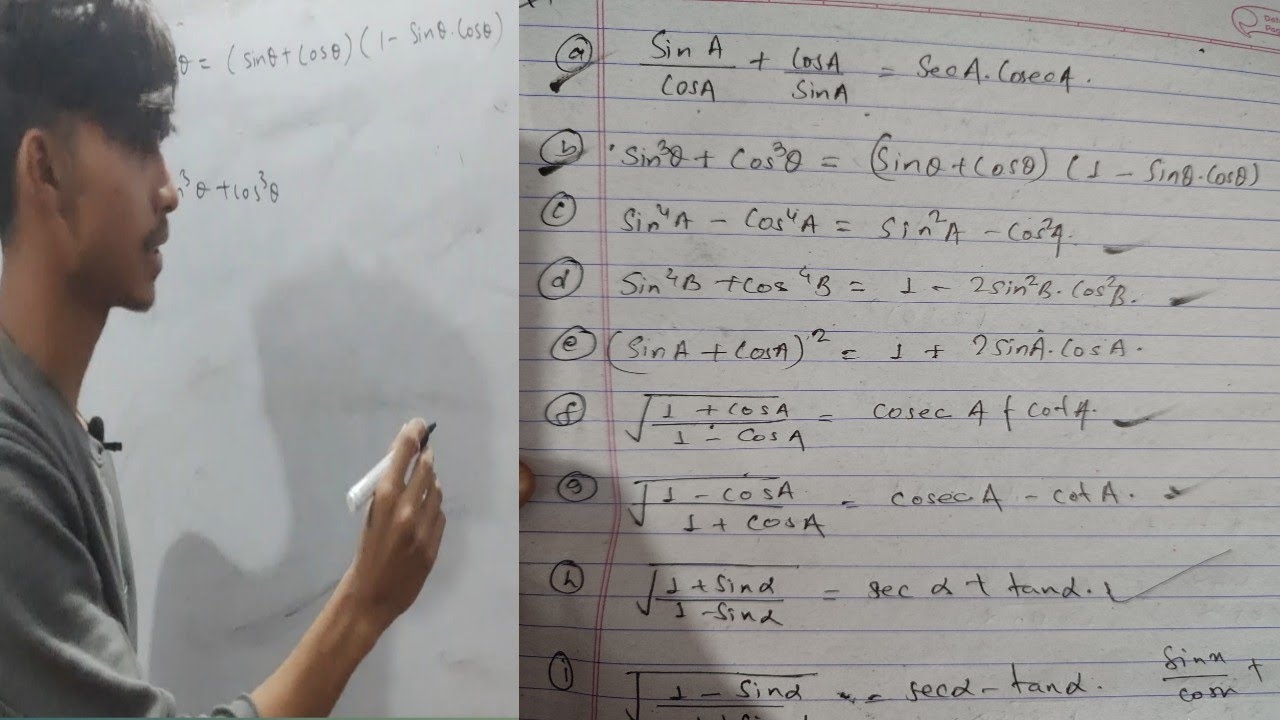 θ = (sinθ + cosθ) (1 - sinθ.cosθ)
³θ + cos³θ
(a) Sin A/CosA + CosA/SinA = SecA.CosecA.
(b) Sin³θ + Cos³θ = (Sinθ + Cosθ) (1 - Sinθ.Cosθ)
(c) Sin⁴A - Cos⁴A = Sin²A - Cos²A.
(d) Sin⁴B + Cos⁴B = 1 - 2Sin²B.Cos²B.
(e) (SinA + CosA)² = 1 + 2SinA.CosA.
(f) √(1 + CosA/1 - CosA) = Cosec A + Cot A.
(g) √(1 - CosA/1 + CosA) = CosecA - Cot A.
(h) √(1 + Sinα/1 - Sinα) = Sec α + tanα.
(i) √(1 - Sinα = Secα - tanα. Sinx/Cosx +